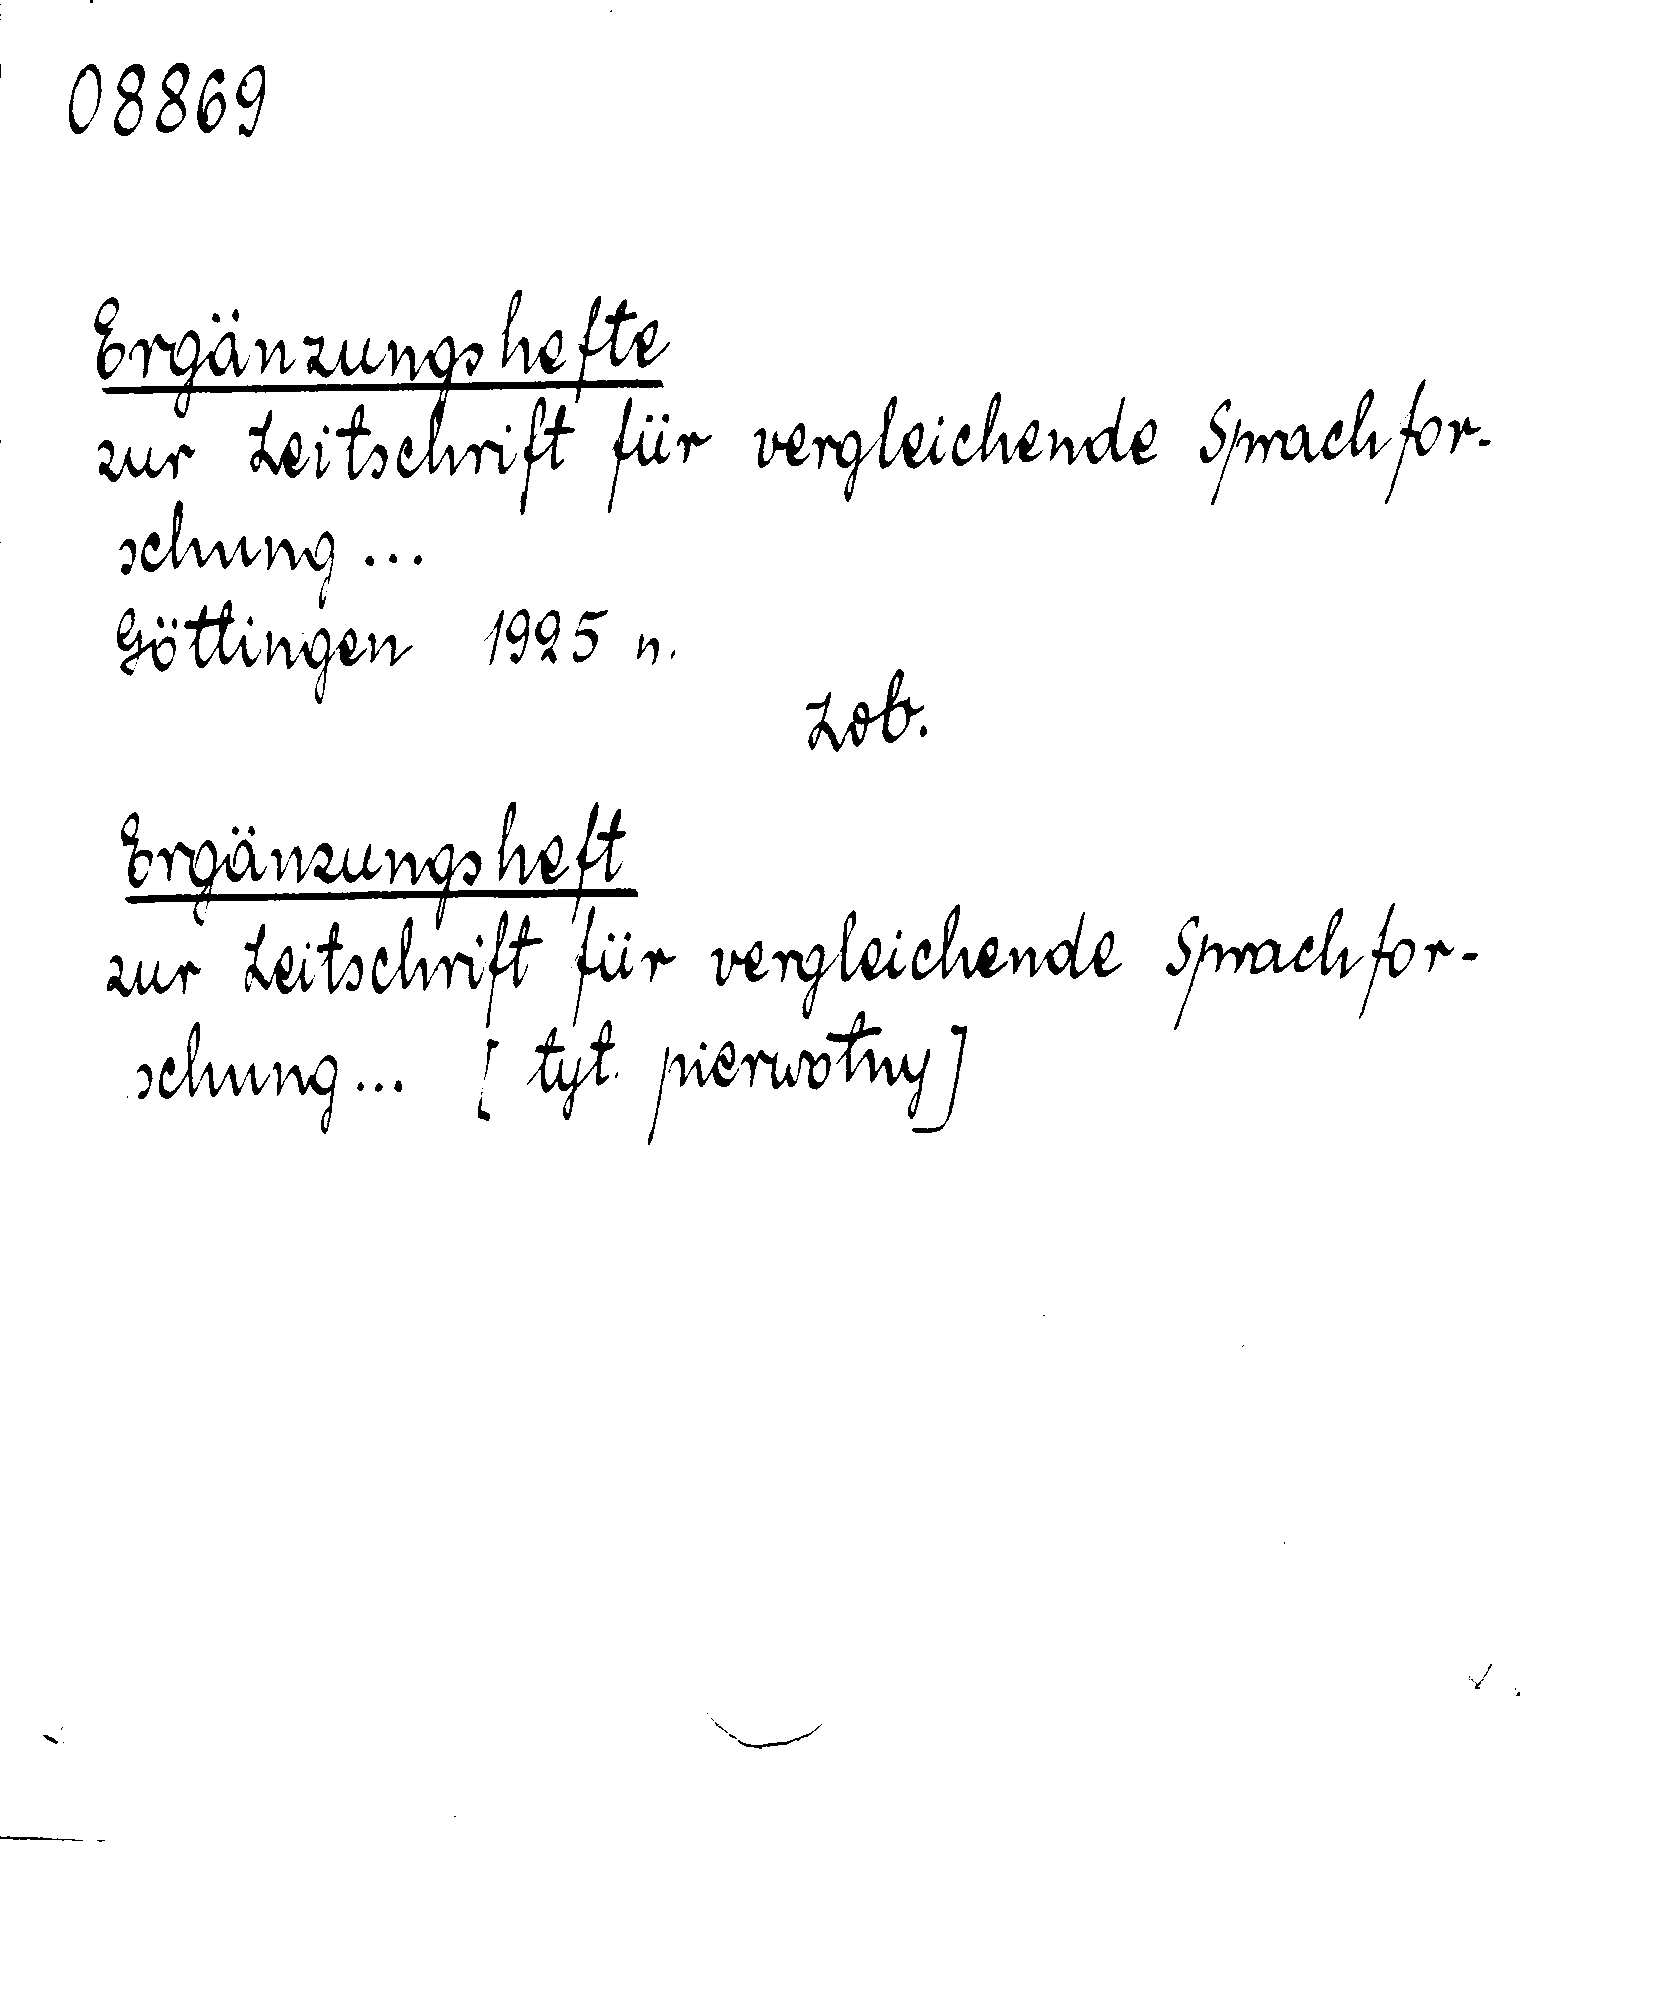 08869
Ergänzungshefte
zur Zeitschrift für vergleichende Sprachfor-
schung ...
Göttingen 1925 n.
zob.
Ergänzungsheft
zur Zeitschrift für vergleichende Sprachfor-
schung ... [tyt. pierwotny]